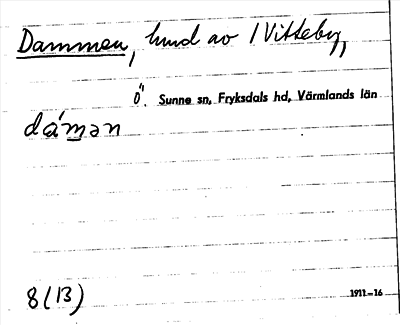 Dammen, hmd av 1 Vitteby,
Ö. Sunne sn, Fryksdals hd, Värmlands län
dámǝn
8 (13)
1911–16